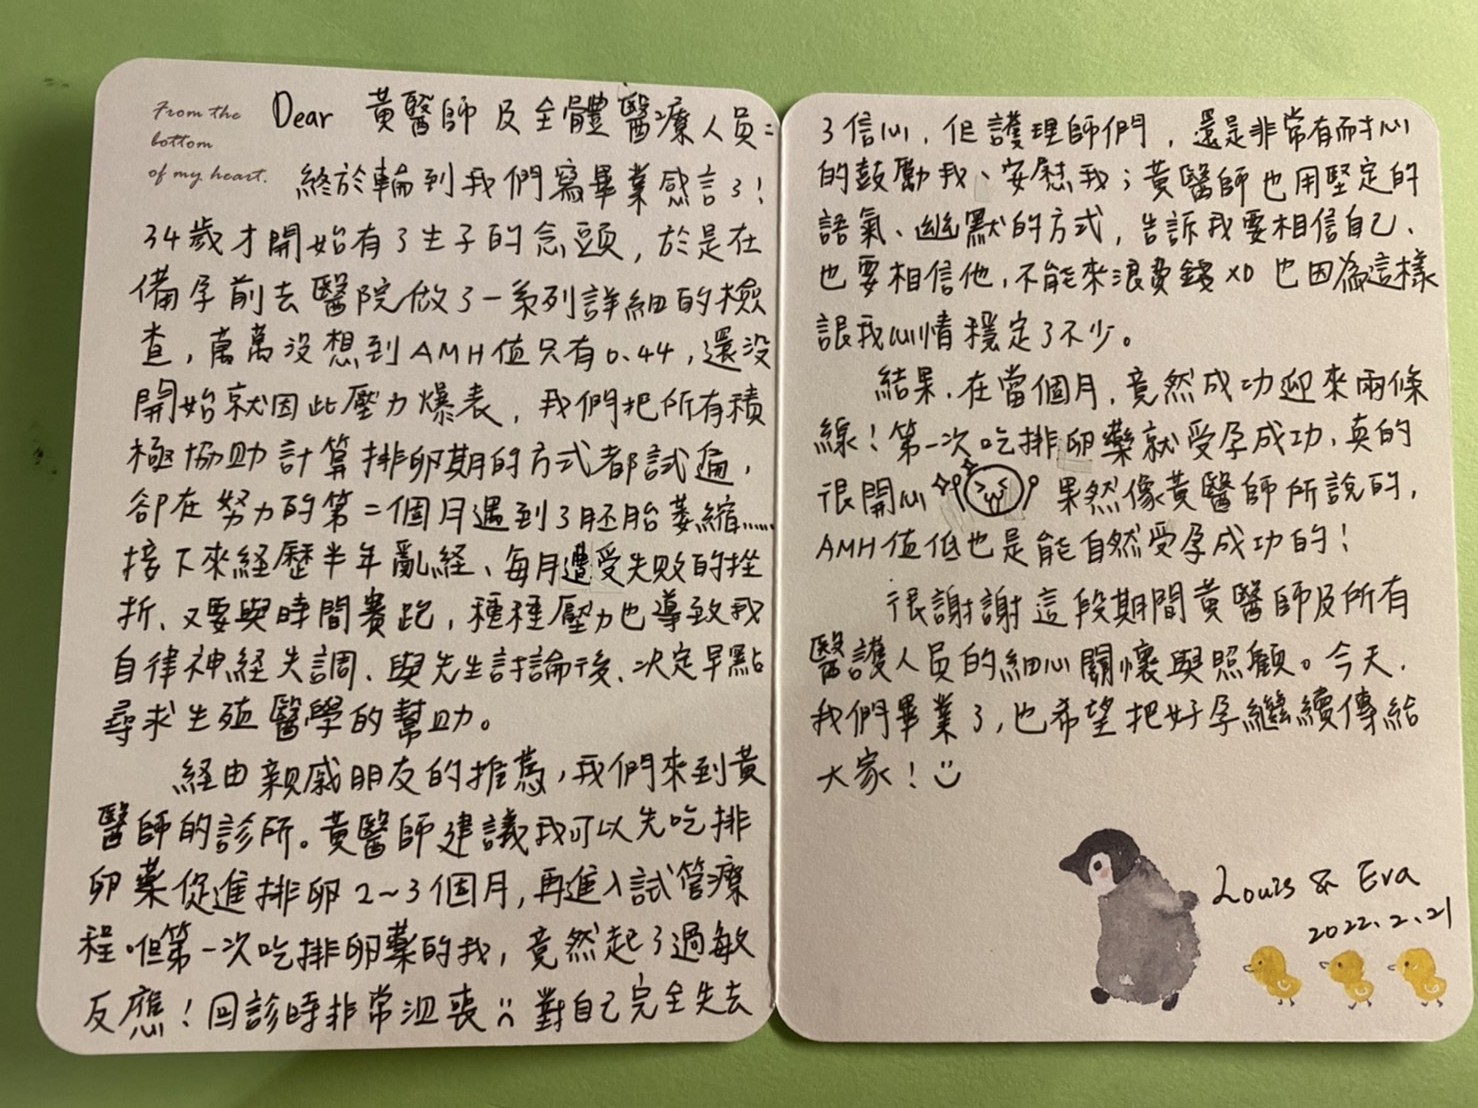 From the
bottom
of my heart.
Dear 黃醫師及全體醫療人員：
終於輪到我們寫畢業感言了！
34歲才開始有了生子的念頭，於是在
備孕前去醫院做了一系列詳細的檢
查，萬萬沒想到AMH值只有0.44，還沒
開始就因此壓力爆表，我們把所有積
極協助計算排卵期的方式都試遍，
卻在努力的第二個月遇到了胚胎萎縮......
接下來經歷半年亂經、每月遭受失敗的挫
折、又要與時間賽跑，種種壓力也導致我
自律神經失調、與先生討論後、決定早點
尋求生殖醫學的幫助。
經由親戚朋友的推薦，我們來到黃
醫師的診所。黃醫師建議我可以先吃排
卵藥促進排卵2~3個月，再進入試管療
程。但第一次吃排卵藥的我，竟然起了過敏
反應！回診時非常沮喪:( 對自己完全失去
了信心，但護理師們，還是非常有耐心
的鼓勵我、安慰我；黃醫師也用堅定的
語氣、幽默的方式，告訴我要相信自己、
也要相信他，不能來浪費錢XD 也因為這樣
讓我心情穩定了不少。
結果，在當個月，竟然成功迎來兩條
線！第一次吃排卵藥就受孕成功，真的
很開心 果然像黃醫師所說的，
AMH值低也是能自然受孕成功的！
很謝謝這段期間黃醫師及所有
醫護人員的細心關懷與照顧。今天，
我們畢業了，也希望把好孕繼續傳給
大家！:)
Louis & Eva
2022.2.21